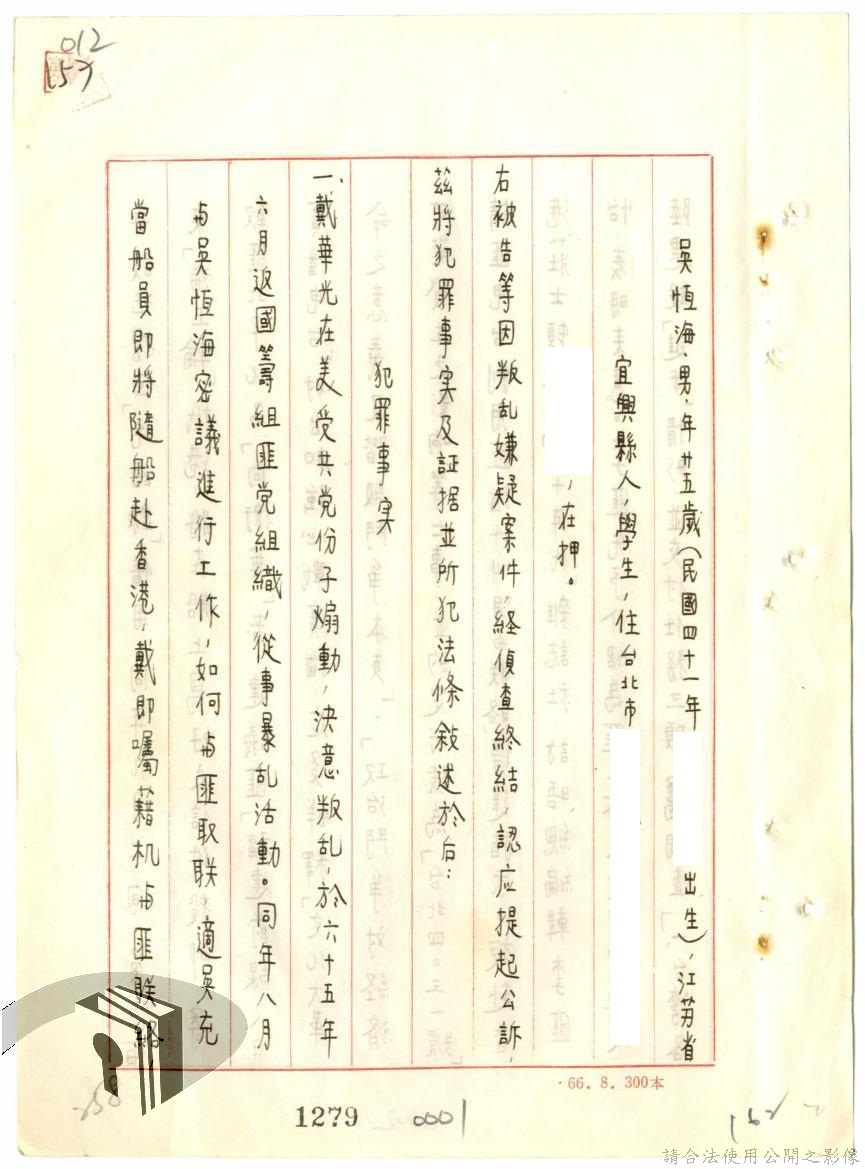 012
157
吳恆海、男、年廿五歲(民國四十一年 出生)，江苏省
宜興縣人，學生，住台北市
，在押。
右被告等因叛乱嫌疑案件，経偵查終結，認应提起公訴，
茲將犯罪事实及証据並所犯法條敍述於后：
犯罪事实
一、戴華光在美受共党份子煽動，決意叛乱，於六十五年
六月返國籌組匪党組織，從事暴乱活動。同年八月
与吳恆海密議進行工作，如何与匪取联，適吳充
當船員即將隨船赴香港，戴即囑藉机与匪联絡
·66.8.300本
1279
0001
請合法使用公開之影像